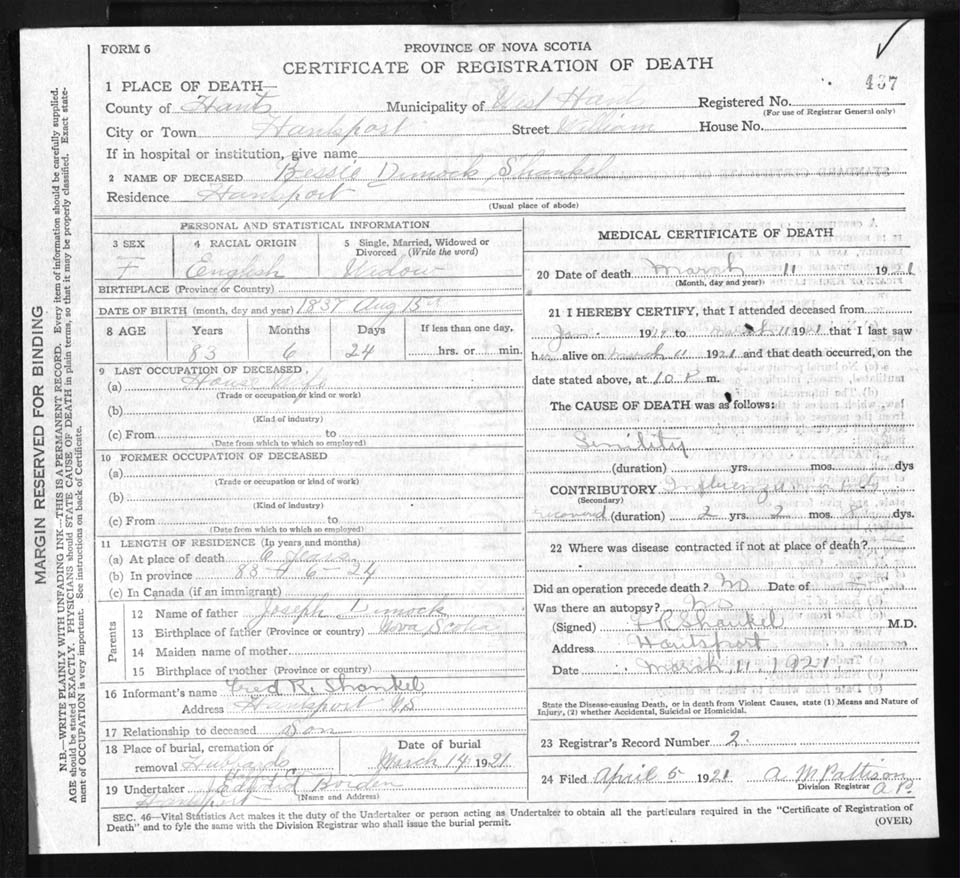 FORM 6
PROVINCE OF NOVA SCOTIA
CERTIFICATE OF REGISTRATION OF DEATH
437
1 PLACE OF DEATH—
County of Hants Municipality of West Hants Registered No.
(For use of Registrar General only)
City or Town Hantsport Street William House No.
If in hospital or institution, give name
2 NAME OF DECEASED Bessie Dimock Shankel
Residence Hantsport
(Usual place of abode)
PERSONAL AND STATISTICAL INFORMATION
3 SEX F
4 RACIAL ORIGIN English
5 Single, Married, Widowed or Divorced (Write the word) Widow
BIRTHPLACE (Province or Country)
DATE OF BIRTH (month, day and year) 1837 Aug 15
8 AGE Years Months Days If less than one day,
83 6 24 hrs. or min.
9 LAST OCCUPATION OF DECEASED
(a) House Wife
(Trade or occupation or kind or work)
(b)
(Kind of industry)
(c) From to
(Date from which to which so employed)
10 FORMER OCCUPATION OF DECEASED
(a)
(Trade or occupation or kind of work)
(b)
(Kind of industry)
(c) From to
(Date from which to which so employed)
11 LENGTH OF RESIDENCE (In years and months)
(a) At place of death 6 years
(b) In province 83 - 6 - 24
(c) In Canada (if an immigrant)
Parents
12 Name of father Joseph Dimock
13 Birthplace of father (Province or country) Nova Scotia
14 Maiden name of mother
15 Birthplace of mother (Province or country)
16 Informant's name Fred R. Shankel
Address Hantsport NS
17 Relationship to deceased Son
18 Place of burial, cremation or removal Hubbards
Date of burial March 14 1921
19 Undertaker Borden
Hantsport (Name and Address)
MEDICAL CERTIFICATE OF DEATH
20 Date of death March 11 1921
(Month, day and year)
21 I HEREBY CERTIFY, that I attended deceased from
Jan to March 11 1921 that I last saw
her alive on March 11 1921 and that death occurred, on the
date stated above, at 10 m.
The CAUSE OF DEATH was as follows:
Senility
(duration) yrs. mos. dys
CONTRIBUTORY Influenza
(Secondary)
recovered (duration) 2 yrs. 2 mos. 8 dys.
22 Where was disease contracted if not at place of death?
Did an operation precede death? No Date of
Was there an autopsy? No
(Signed) F R Shankel M.D.
Address Hantsport
Date March 11 1921
State the Disease-causing Death, or in death from Violent Causes, state (1) Means and Nature of
Injury, (2) whether Accidental, Suicidal or Homicidal.
23 Registrar's Record Number 2
24 Filed April 5 1921 A. M Pattison
Division Registrar
SEC. 46—Vital Statistics Act makes it the duty of the Undertaker or person acting as Undertaker to obtain all the particulars required in the "Certificate of Registration of
Death" and to fyle the same with the Division Registrar who shall issue the burial permit.
(OVER)
MARGIN RESERVED FOR BINDING
N.B.—WRITE PLAINLY WITH UNFADING INK—THIS IS A PERMANENT RECORD. Every item of information should be carefully supplied.
AGE should be stated EXACTLY. PHYSICIANS should STATE CAUSE OF DEATH in plain terms, so that it may be properly classified. Exact state-
ment of OCCUPATION is very important. See instructions on back of Certificate.